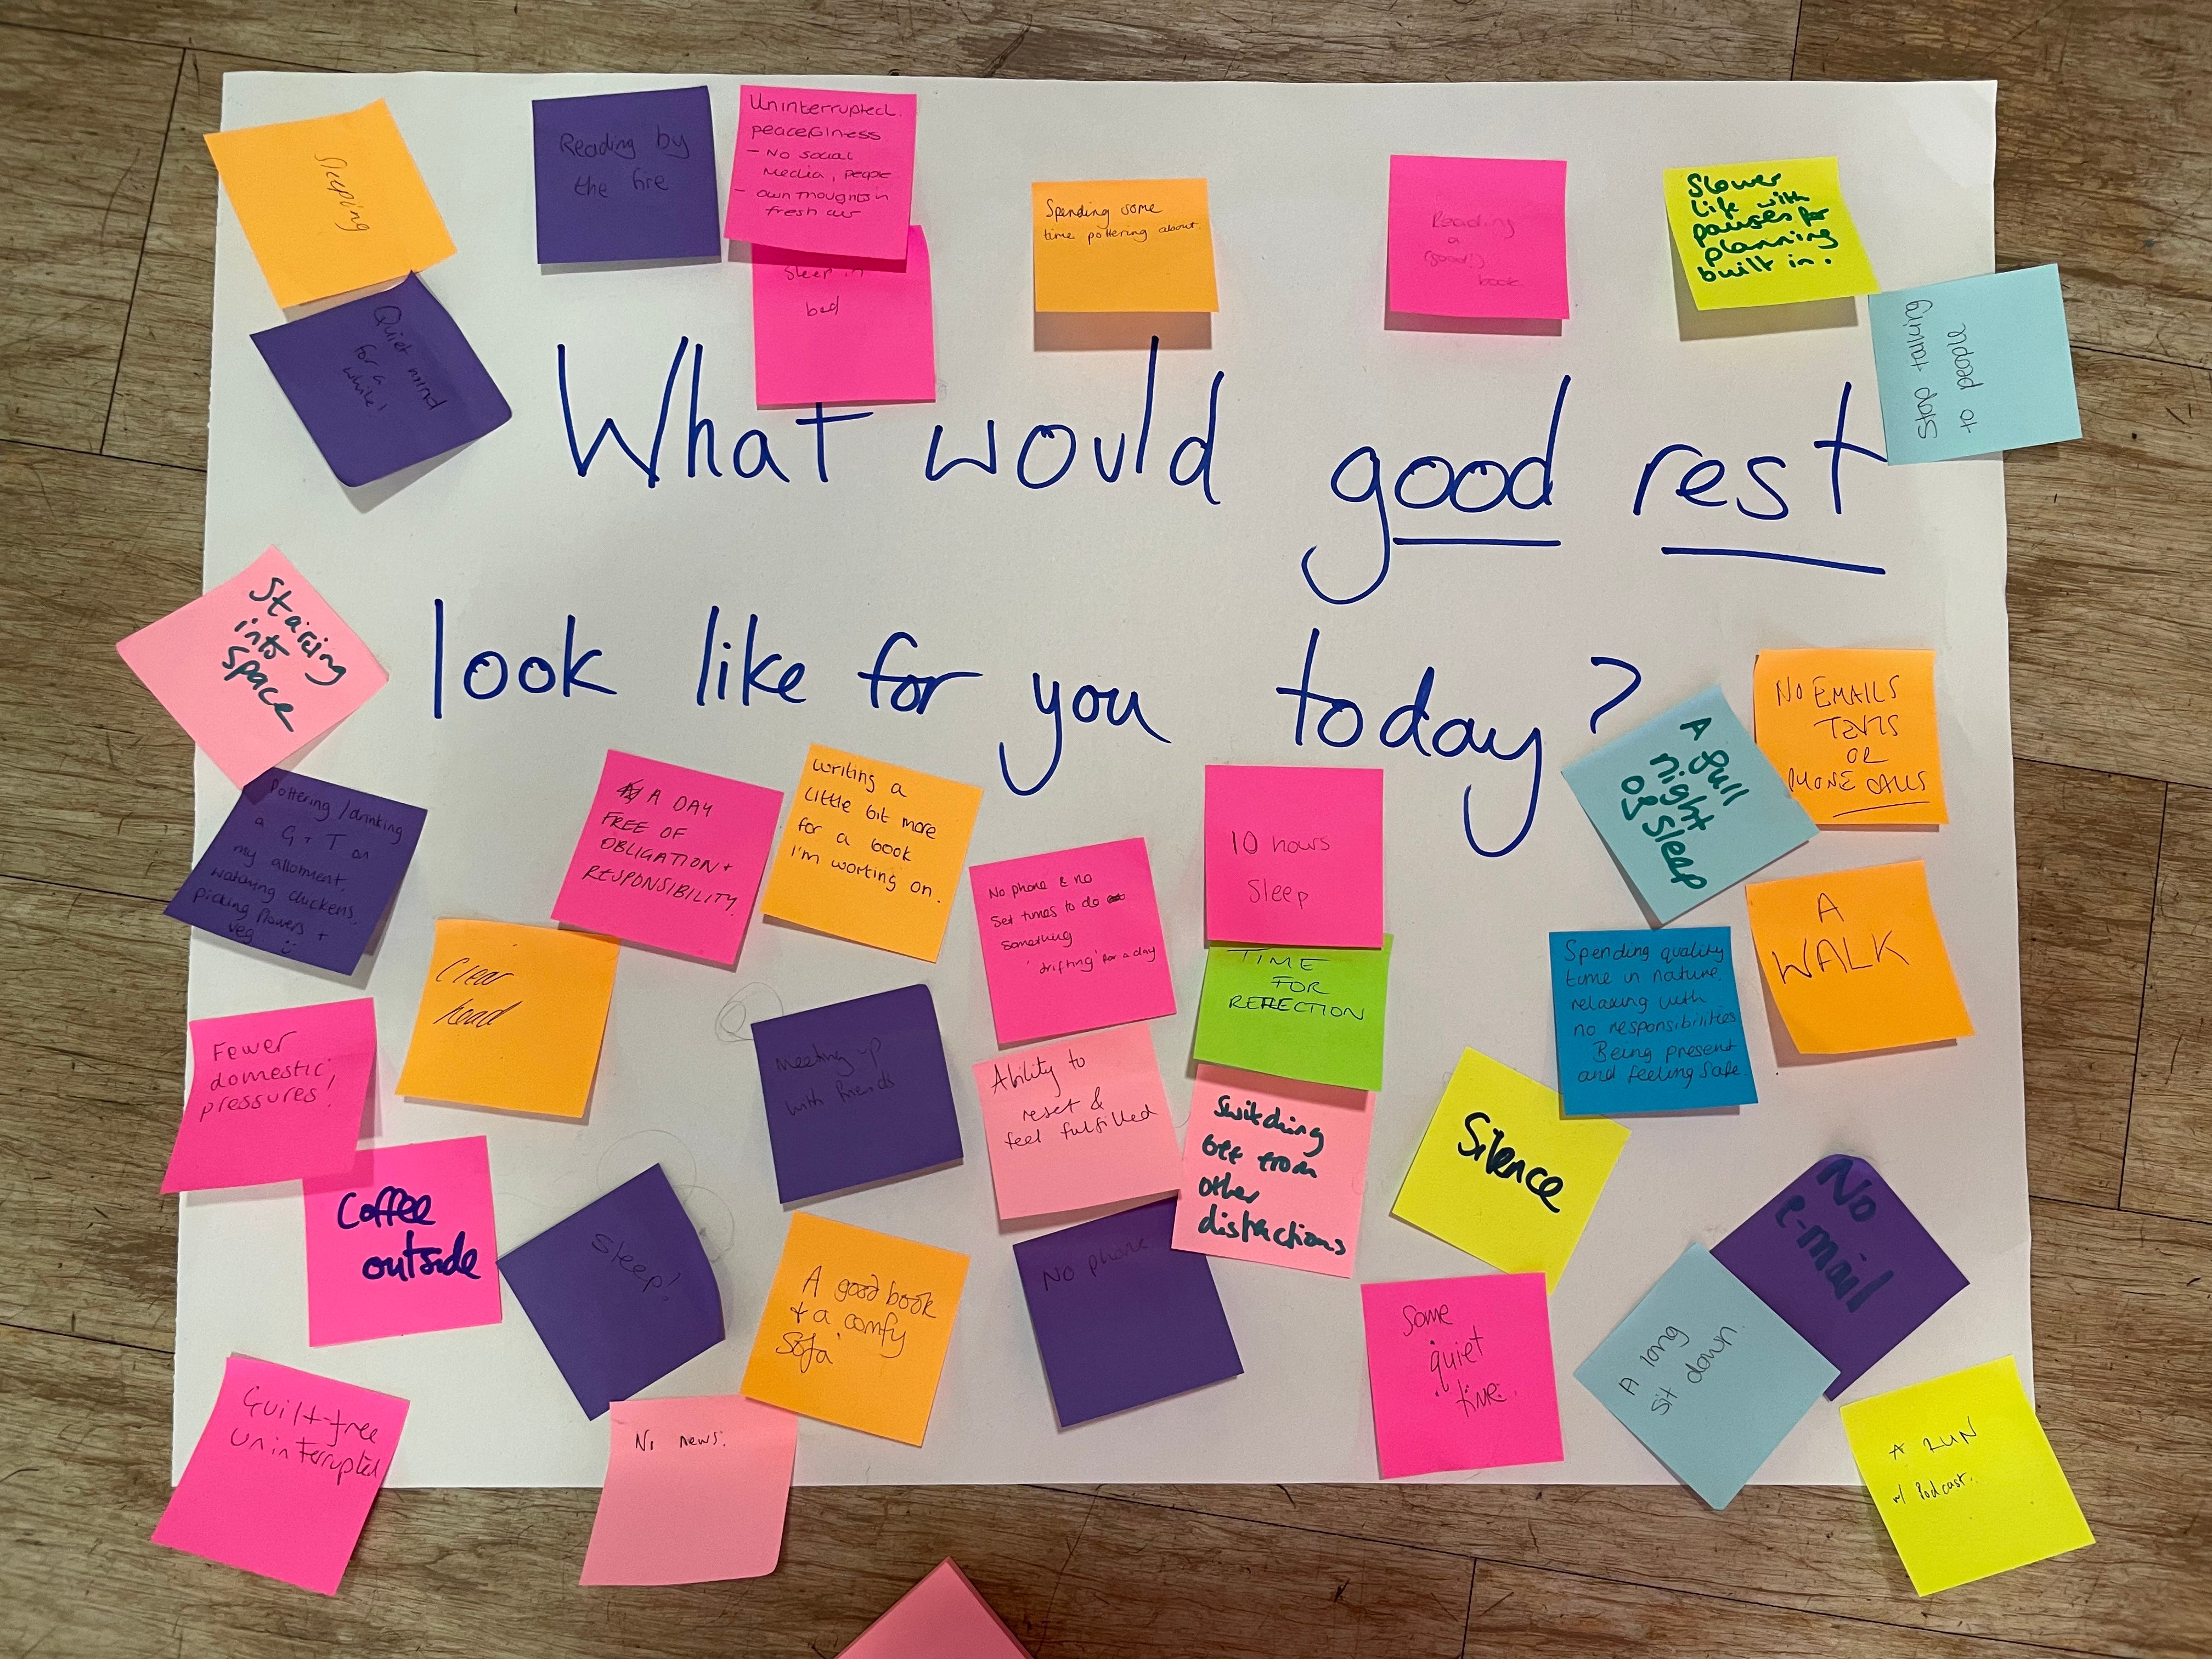 Sleeping
Reading by
the fire
Uninterrupted.
peacefulness
- No social
media, people
- own thoughts in
fresh air
Sleep in
bed
Spending some
time pottering about.
Reading
a
good
book.
Slower
life with
pauses for
planning
built in.
Stop talking
to people
Quiet mind
for a
while!
What would good rest
look like for you today?
Staring
into
space
Pottering / drinking
a G + T on
my allotment.
watching chickens.
picking flowers +
veg ☺
A DAY
FREE OF
OBLIGATION +
RESPONSIBILITY.
Writing a
little bit more
for a book
I'm working on.
No phone & no
set times to do
something
'drifting' for a day
10 hours
Sleep
A full
night
of sleep
NO EMAILS
TEXTS
OR
PHONE CALLS
A
WALK
Clear
head
TIME
FOR
REFLECTION
Spending quality
time in nature.
relaxing with
no responsibilities
Being present
and feeling safe.
Fewer
domestic
pressures!
Meeting up
with friends
Ability to
reset &
feel fulfilled
Switching
off from
other
distractions
Silence
No
e-mail
Coffee
outside
Sleep!
A good book
+ a comfy
sofa
No phone
Some
quiet
time.
A long
sit down.
Guilt-free
Uninterrupted
No news.
A RUN
w/ Podcast.